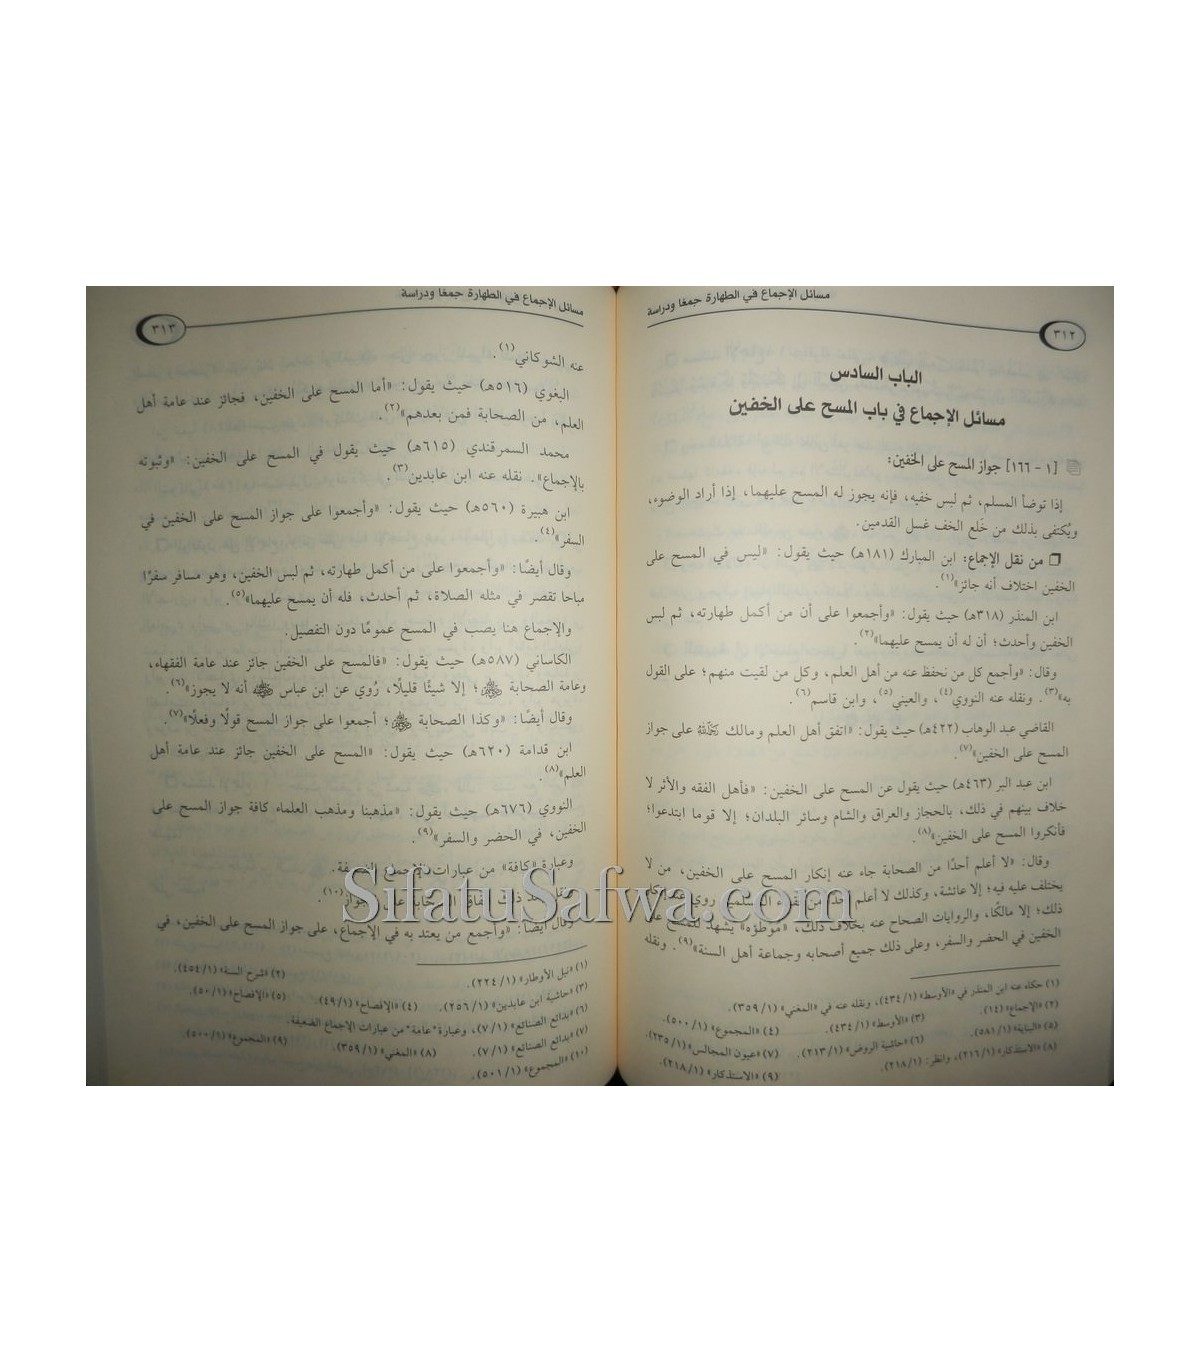 مسائل الإجماع في الطهارة جمعًا ودراسة
٣١٢
الباب السادس
مسائل الإجماع في باب المسح على الخفين
[١ - ١٦٦] جواز المسح على الخفين:
إذا توضأ المسلم، ثم لبس خفيه، فإنه يجوز له المسح عليهما، إذا أراد الوضوء،
ويُكتفى بذلك من خَلع الخف غسل القدمين.
من نقل الإجماع: ابن المبارك (١٨١هـ) حيث يقول: «ليس في المسح على
الخفين اختلاف أنه جائز»(١).
ابن المنذر (٣١٨هـ) حيث يقول: «وأجمعوا على أن من أكمل طهارته، ثم لبس
الخفين وأحدث؛ أن له أن يمسح عليهما»(٢)
وقال: «وأجمع كل من نحفظ عنه من أهل العلم، وكل من لقيت منهم؛ على القول
به»(٣). ونقله عنه النووي(٤)، والعيني(٥)، وابن قاسم(٦).
القاضي عبد الوهاب (٤٢٢هـ) حيث يقول: «اتفق أهل العلم ومالك ﷺ على جواز
المسح على الخفين»(٧).
ابن عبد البر (٤٦٣هـ) حيث يقول عن المسح على الخفين: «فأهل الفقه والأثر لا
خلاف بينهم في ذلك، بالحجاز والعراق والشام وسائر البلدان؛ إلا قوما ابتدعوا؛
فأنكروا المسح على الخفين»(٨).
وقال: «لا أعلم أحدًا من الصحابة جاء عنه إنكار المسح على الخفين، من لا
يختلف عليه فيه؛ إلا عائشة، وكذلك لا أعلم أحدًا من فقهاء المسلمين روي عنه إنكار
ذلك؛ إلا مالكًا، والروايات الصحاح عنه بخلاف ذلك، «موطؤه» يشهد للمسح على
الخفين في الحضر والسفر، وعلى ذلك جميع أصحابه وجماعة أهل السنة»(٩). ونقله
(١) حكاه عنه ابن المنذر في «الأوسط» (١/ ٤٣٤)، ونقله عنه في «المغني» (١/ ٣٥٩).
(٢) «الإجماع» (١٤). (٣) «الأوسط» (١/ ٤٣٤). (٤) «المجموع» (١/ ٥٠٠).
(٥) «البناية» (١/ ٥٨١). (٦) «حاشية الروض» (١/ ٢١٣). (٧) «عيون المجالس» (١/ ٢٣٥).
(٨) «الاستذكار» (١/ ٢١٦)، وانظر: (١/ ٢١٨). (٩) «الاستذكار» (١/ ٢١٨).
مسائل الإجماع في الطهارة جمعًا ودراسة
٣١٣
عنه الشوكاني(١).
البغوي (٥١٦هـ) حيث يقول: «أما المسح على الخفين، فجائز عند عامة أهل
العلم، من الصحابة فمن بعدهم»(٢).
محمد السمرقندي (٦١٥هـ) حيث يقول في المسح على الخفين: «وثبوته
بالإجماع». نقله عنه ابن عابدين(٣).
ابن هبيرة (٥٦٠هـ) حيث يقول: «وأجمعوا على جواز المسح على الخفين في
السفر»(٤).
وقال أيضًا: «وأجمعوا على من أكمل طهارته، ثم لبس الخفين، وهو مسافر سفرًا
مباحا تقصر في مثله الصلاة، ثم أحدث، فله أن يمسح عليهما»(٥).
والإجماع هنا يصب في المسح عمومًا دون التفصيل.
الكاساني (٥٨٧هـ) حيث يقول: «فالمسح على الخفين جائز عند عامة الفقهاء،
وعامة الصحابة؛ إلا شيئًا قليلًا، رُوي عن ابن عباس أنه لا يجوز»(٦).
وقال أيضًا: «وكذا الصحابة؛ أجمعوا على جواز المسح قولًا وفعلًا»(٧).
ابن قدامة (٦٢٠هـ) حيث يقول: «المسح على الخفين جائز عند عامة أهل
العلم»(٨).
النووي (٦٧٦هـ) حيث يقول: «مذهبنا ومذهب العلماء كافة جواز المسح على
الخفين، في الحضر والسفر»(٩).
وعبارة «كافة» من عبارات الإجماع الضعيفة.
بعد ذلك اتفاق الصحابة على الجواز(١٠).
وقال أيضًا: «وأجمع من يعتد به في الإجماع، على جواز المسح على الخفين، في
(١) «نيل الأوطار» (١/ ٢٢٤). (٢) «شرح السنة» (١/ ٤٥٤).
(٣) «حاشية ابن عابدين» (١/ ٢٥٦). (٤) «الإفصاح» (١/ ٤٩). (٥) «الإفصاح» (١/ ٥٠).
(٦) «بدائع الصنائع» (١/ ٧)، وعبارة "عامة" من عبارات الإجماع الضعيفة.
(٧) «بدائع الصنائع» (١/ ٧). (٨) «المغني» (١/ ٣٥٩). (٩) «المجموع» (١/ ٥٠٠).
(١٠) «المجموع» (١/ ٥٠١).
SifatuSafwa.com